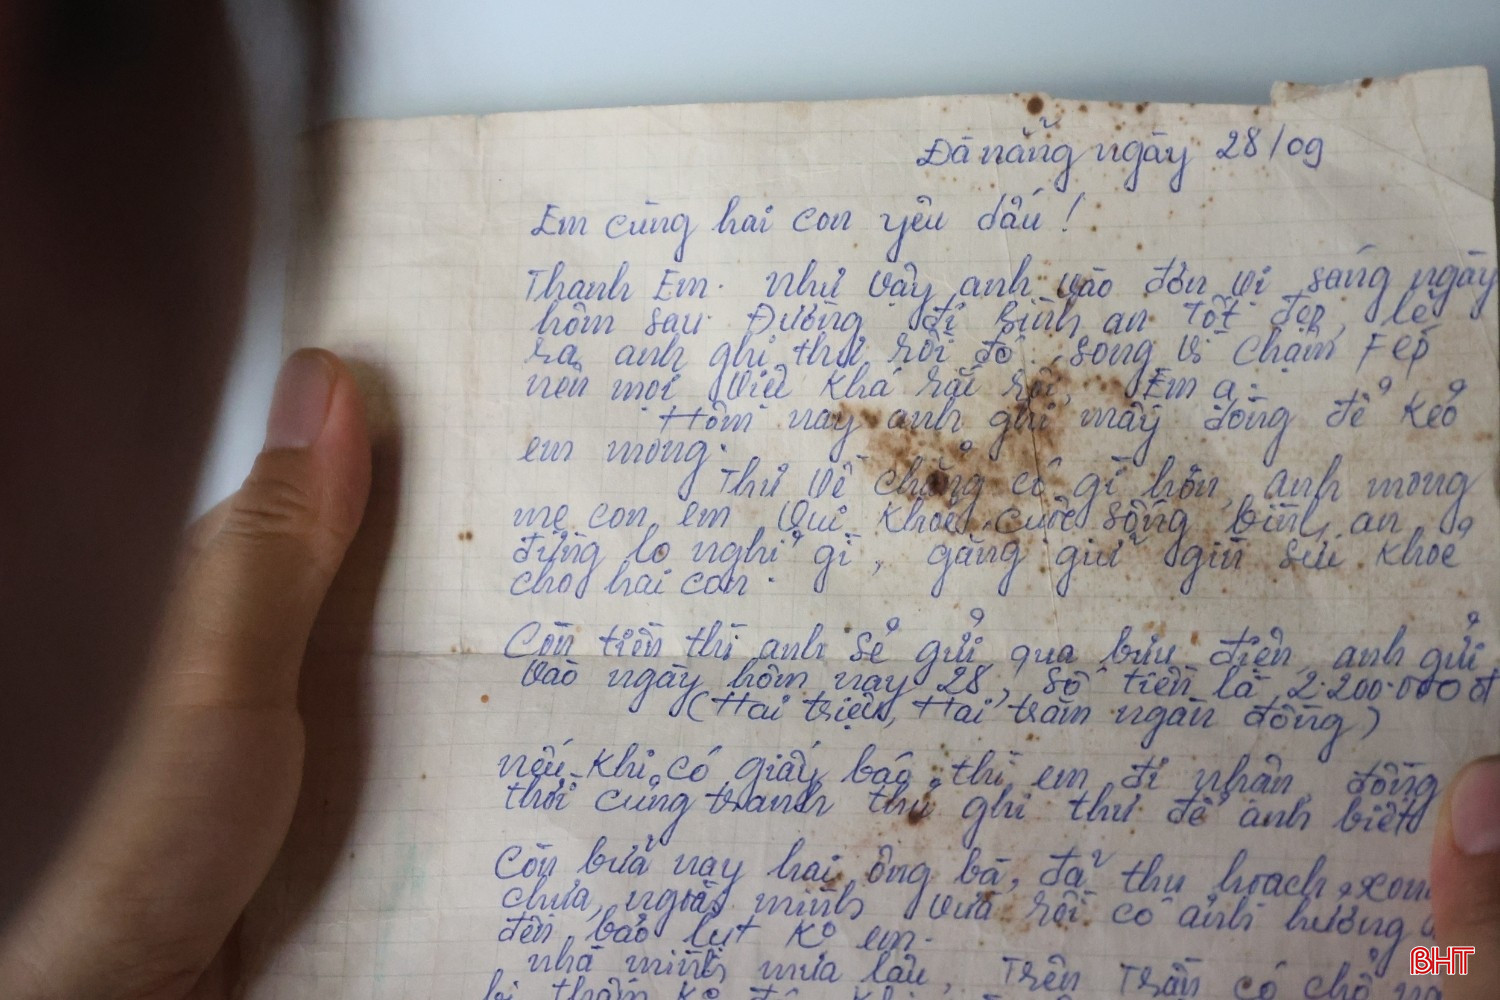 Đà nẵng ngày 28/09
Em cùng hai con yêu dấu!
Thanh Em. như vậy anh vào đơn vị sáng ngày
hôm sau. Đường đi bình an tốt đẹp, lẽ
ra anh ghi thư rồi đó. song vì chậm Fép
nên mọi việc khá rãi rồi, Em ạ.
Hôm nay anh ghi mấy dòng để kẻo
em mong.
Thư về chẳng có gì hơn, anh mong
mẹ con em vui khoẻ, cuộc sống bình an
đừng lo nghỉ gì, gắng giữ gìn sức khoẻ
cho hai con.
Còn tiền thì anh sẻ gửi qua bưu điện, anh gửi
vào ngày hôm nay 28, số tiền là 2.200.000 đ
(Hai triệu, Hai trăm ngàn đồng)
nếu khi có giấy báo thì em đi nhận, đồng
thời cũng tranh thủ ghi thư để anh biết
Còn bửa nay hai ông bà, đã thu hoạch xong
chưa, ngoài mình vừa rồi có ảnh hưởng
đến bảo lụt ko em.
nhà mình mưa lâu, Trên Trần có chổ
bị thấm ko
BHT